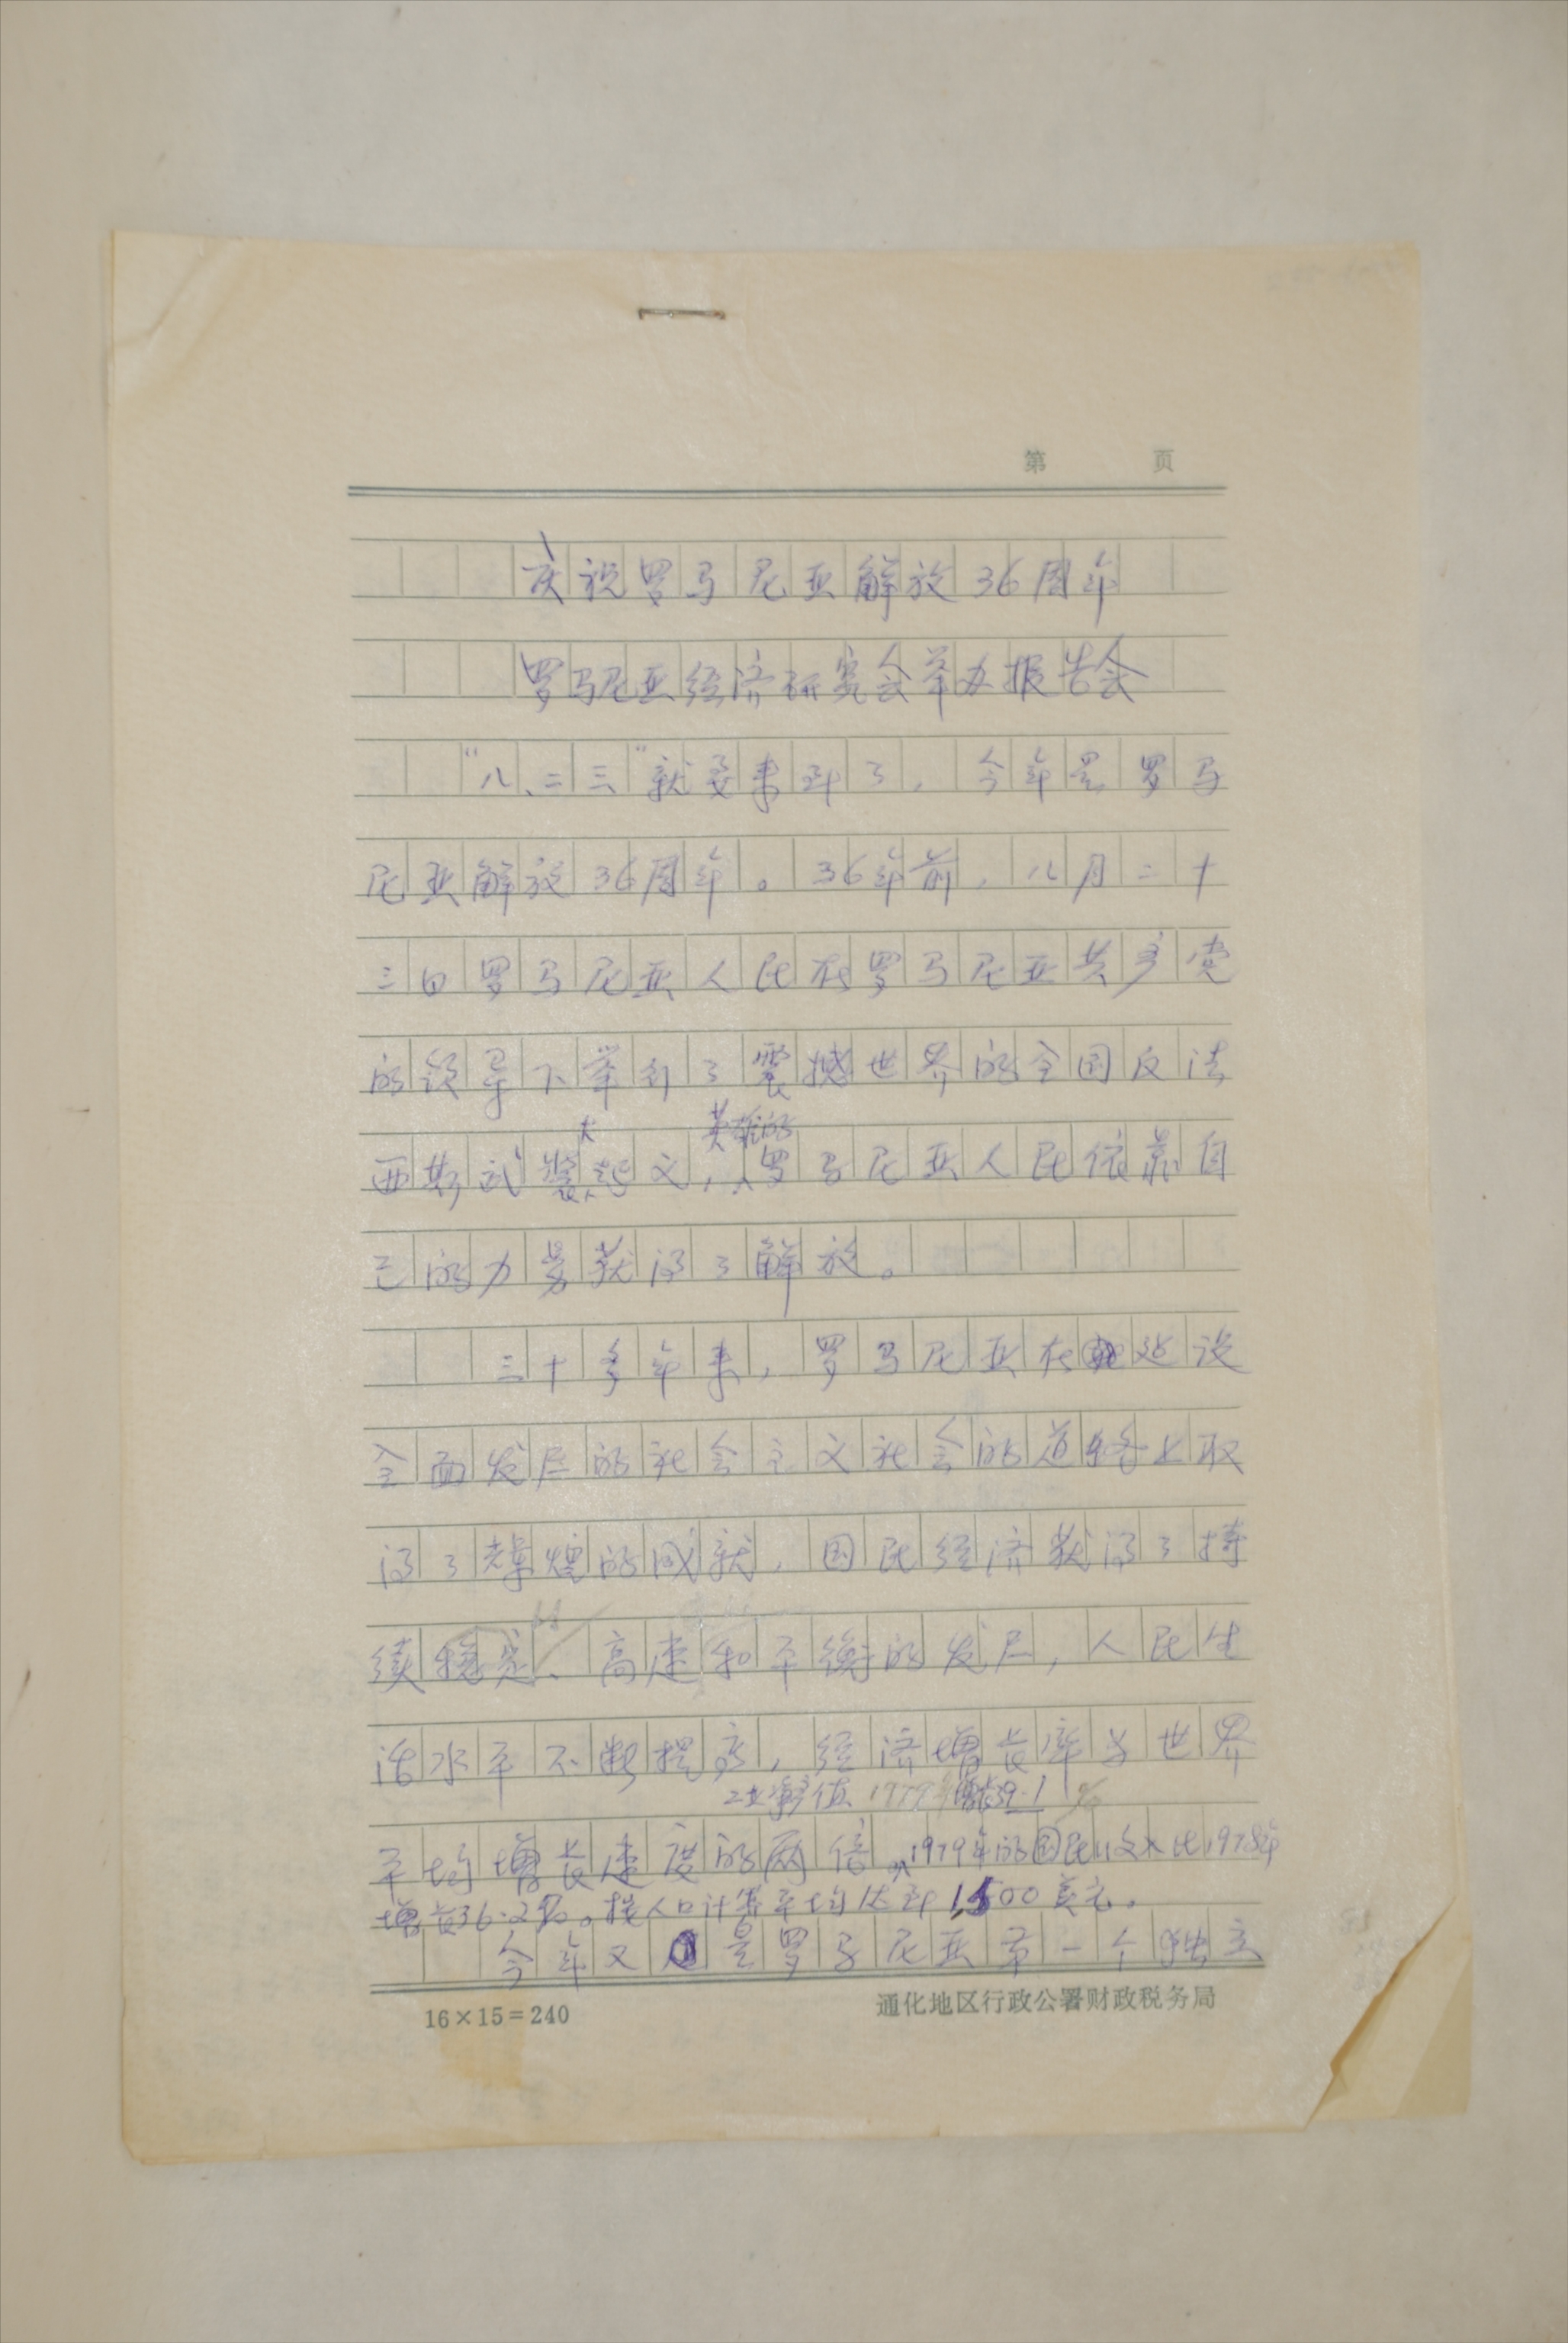 第 页
庆祝罗马尼亚解放36周年
罗马尼亚经济研究会举办报告会
“八、二三”就要来到了，今年是罗马
尼亚解放36周年。36年前，八月二十
三日罗马尼亚人民在罗马尼亚共产党
的领导下举行了震撼世界的全国反法
大 英雄的
西斯武装起义，罗马尼亚人民依靠自
己的力量获得了解放。
三十多年来，罗马尼亚在建设
全面发展的社会主义社会的道路上取
得了辉煌的成就，国民经济获得了持
续稳定、高速和平衡的发展，人民生
活水平不断提高，经济增长率为世界
工业产值 1979年 39.1%
平均增长速度的两倍。1979年的国民收入比1978年
增长36.2%。按人口计算平均达到1,500美元。
今年又是罗马尼亚第一个独立
16×15=240
通化地区行政公署财政税务局